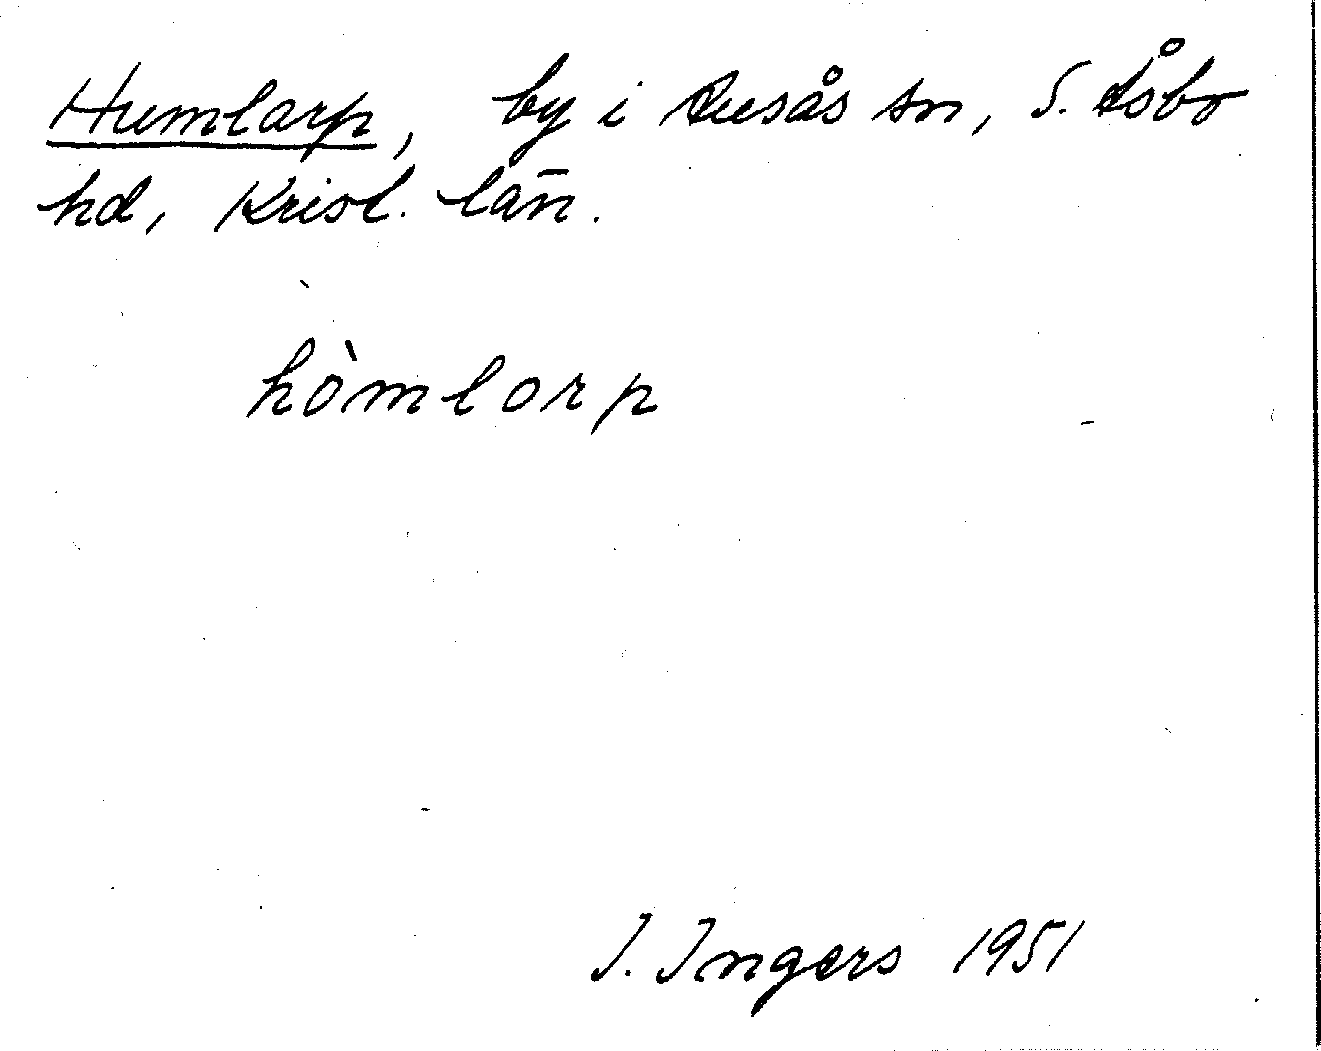 Humlarp, by i Rusås sn, S. Åsbo
hd, Krist. län.
hòmlorp
I. Ingers 1951